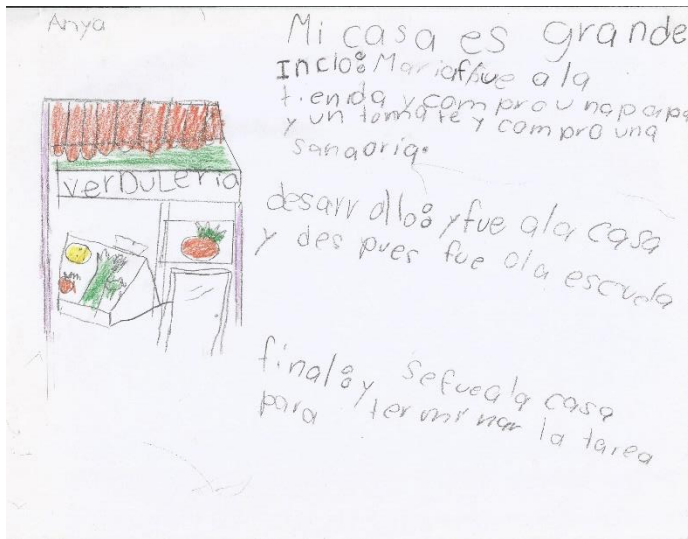 Anya
Mi casa es grande
Inclo: Maria fue a la
tienda y compro una papa
y un tomate y compro una
sanaoria.
verDuLeria
desarrollo: y fue a la casa
y des pues fue a la escuela
final: y se fue a la casa
para terminar la tarea